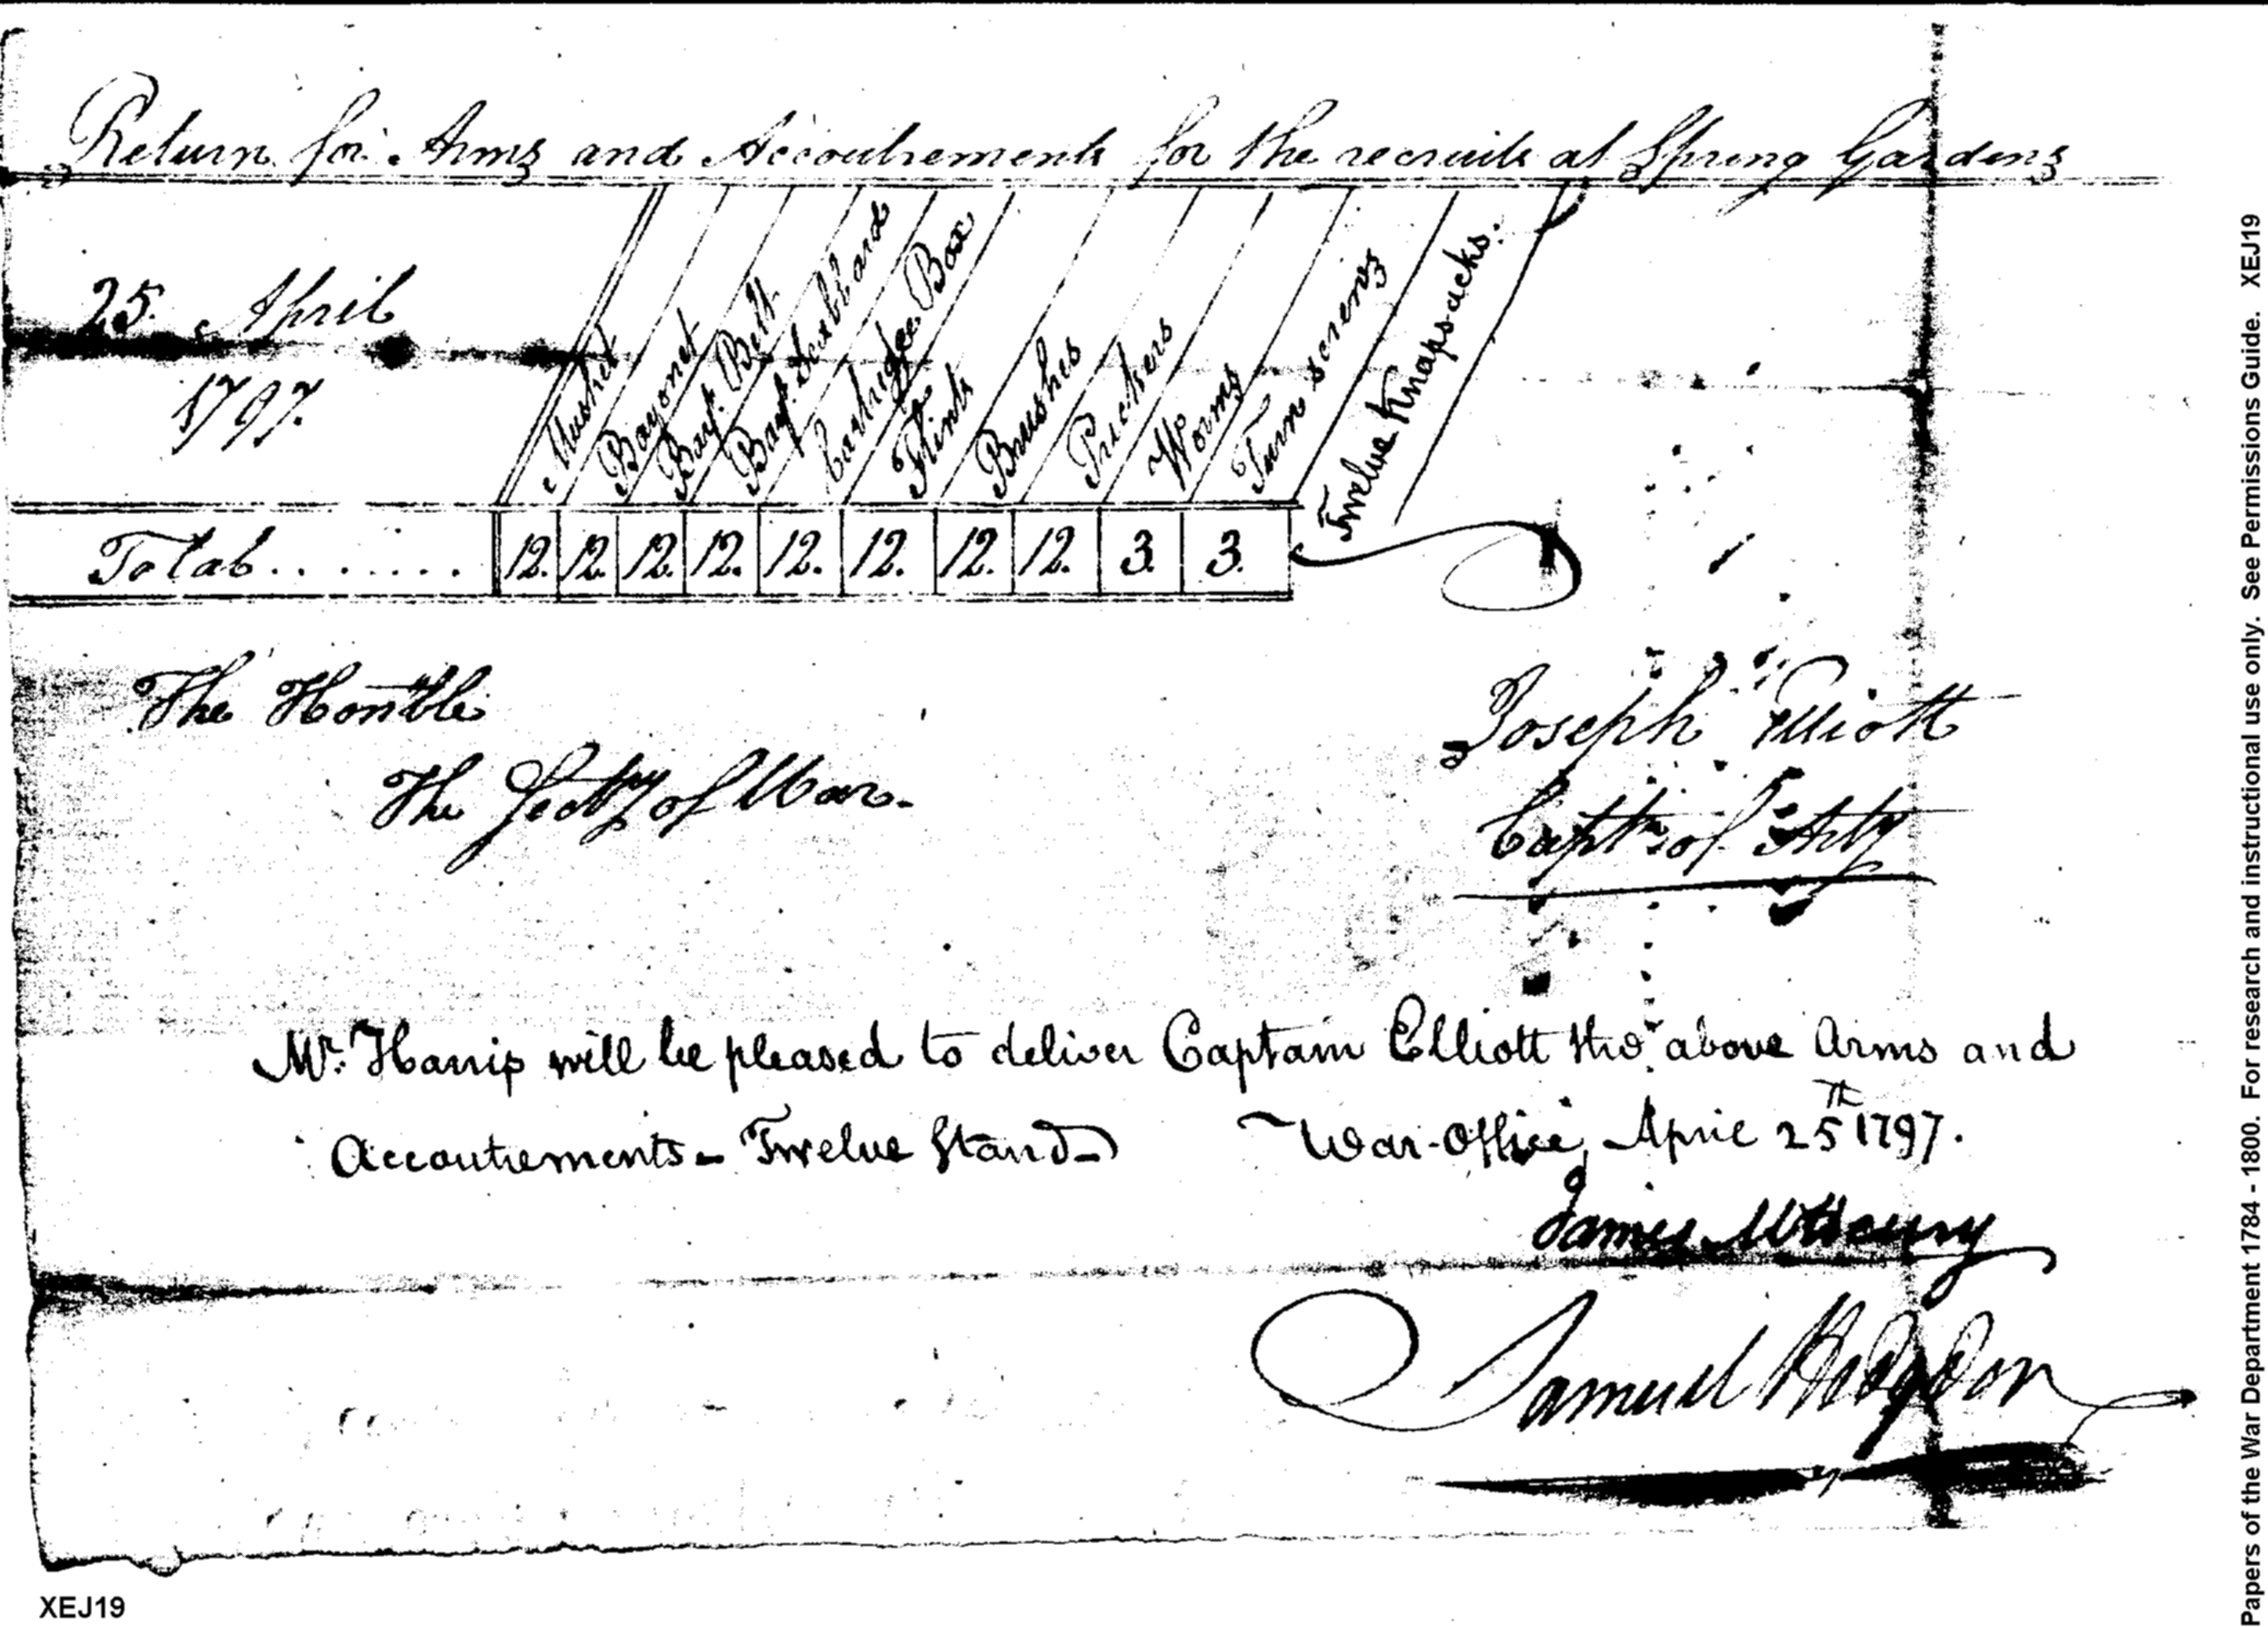 Return for Arms and Accoutrements for the recruits at Spring Gardens
25. April
1797.
Musket
Bayonet
Bayt. Belt
Bayt. Scabbard
Cartridge Box
Flints
Brushes
Prickers
Worms
Turn screws
Twelve Knapsacks.
Total......... 12. 12. 12. 12. 12. 12. 12. 12. 3. 3.
The Honble
The Secty of War.
Joseph Elliott
Captn of Arty
Mr. Harris will be pleased to deliver Captain Elliott the above Arms and
Accoutrements - Twelve Stand -
War-Office, April 25th 1797.
James McHenry
Samuel Hodgdon
XEJ19
Papers of the War Department 1784 - 1800. For research and instructional use only. See Permissions Guide. XEJ19